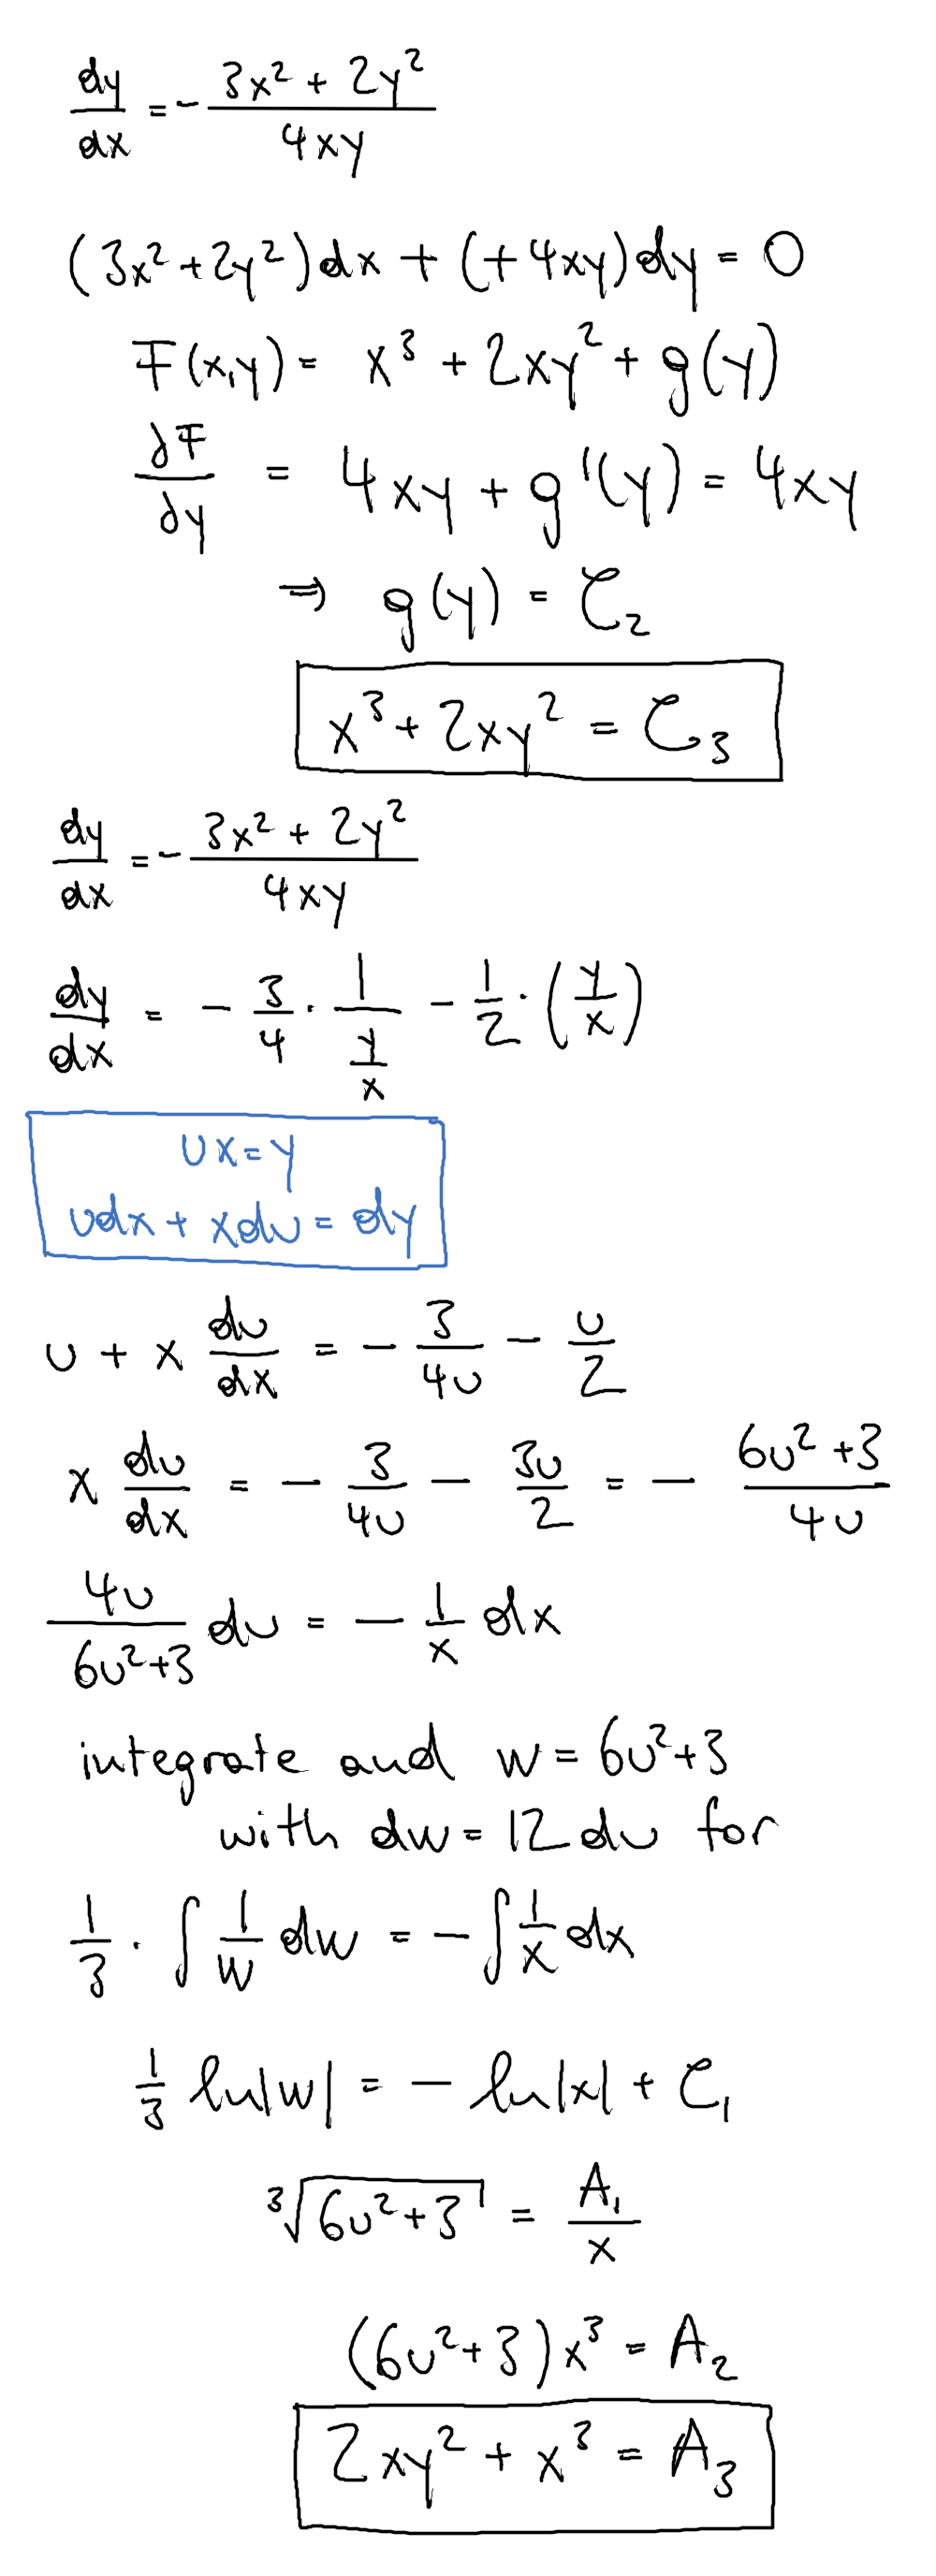 dy/dx = - (3x² + 2y²)/(4xy)
(3x² + 2y²)dx + (+4xy)dy = 0
F(x,y) = x³ + 2xy² + g(y)
∂F/∂y = 4xy + g'(y) = 4xy
⇒ g(y) = C₂
x³ + 2xy² = C₃
dy/dx = - (3x² + 2y²)/(4xy)
dy/dx = - 3/4 · 1/(y/x) - 1/2 · (y/x)
ux = y
udx + xdu = dy
u + x du/dx = - 3/(4u) - u/2
x du/dx = - 3/(4u) - 3u/2 = - (6u² + 3)/(4u)
4u/(6u²+3) du = - 1/x dx
integrate and w = 6u²+3
with dw = 12du for
1/3 · ∫ 1/w dw = - ∫ 1/x dx
1/3 ln|w| = - ln|x| + C₁
³√(6u²+3) = A₁/x
(6u²+3)x³ = A₂
2xy² + x³ = A₃